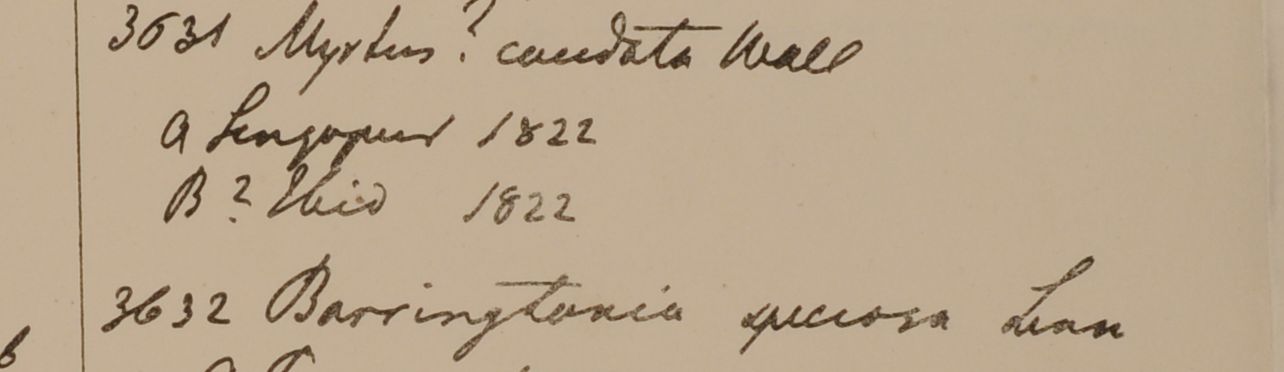 3631 Myrtus? caudata Wall
A Singapur 1822
B? Ibid 1822
3632 Barringtonia speciosa Linn